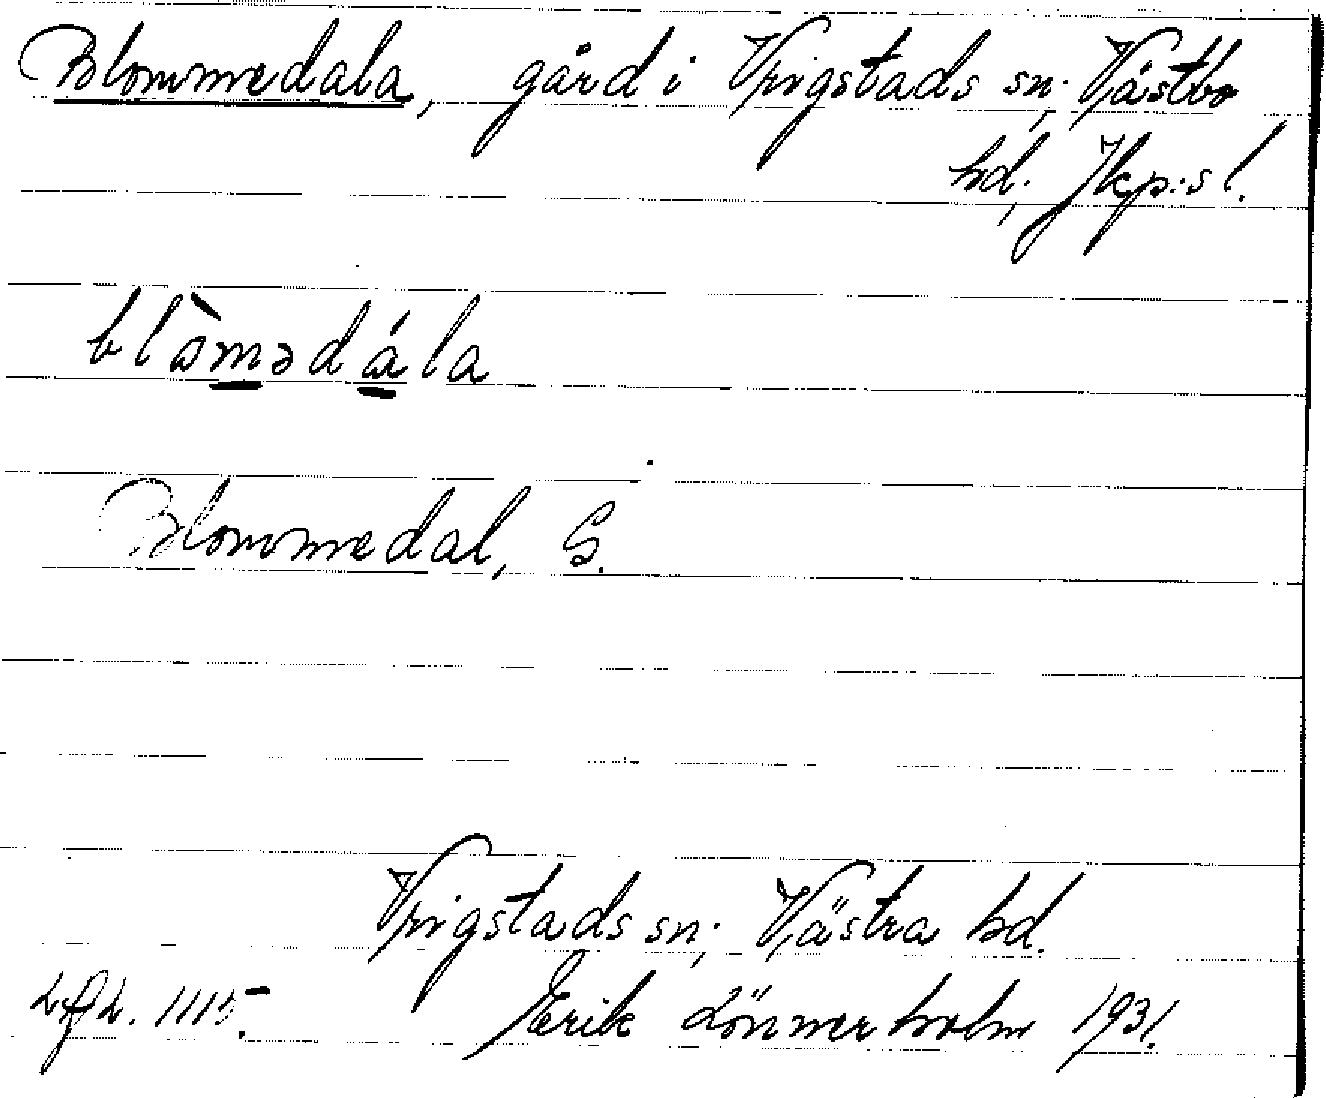 Blommedala, gård i Vrigstads sn; Västbo
hd; Jkp:s l.
blo̊mədála
Blommedal, G.
Vrigstads sn; Västra hd.
1115.
Erik Lönnerholm 1931.